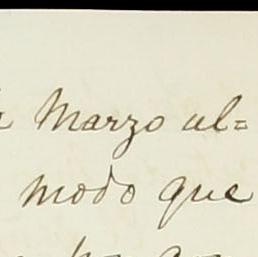 Marzo al=
modo que